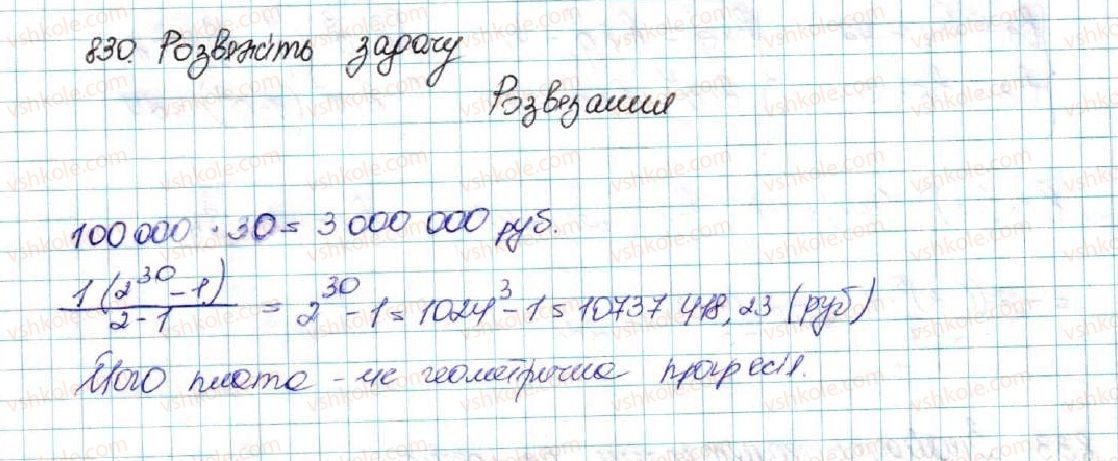 830. Розвежіть задачу
Розвезання
100 000 · 30 = 3 000 000 руб.
1(2^30 - 1) / 2 - 1 = 2^30 - 1 = 1024^3 - 1 = 10737 418,23 (руб)
Його плата - це геометрична прогресія.